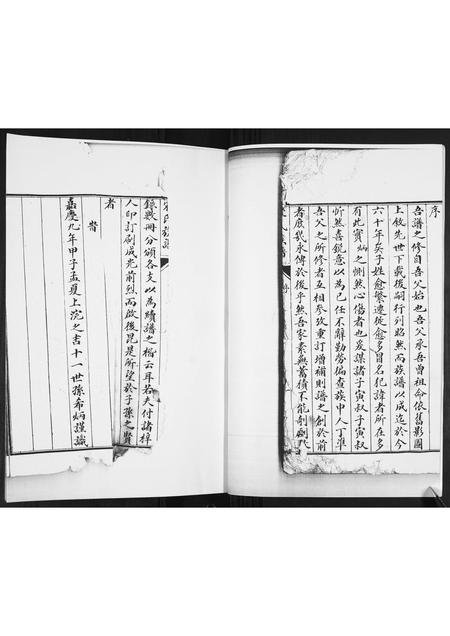 序
吾譜之修自吾父始也吾父承吾曾祖命依舊影圖
上敘先世下載後嗣行列昭然而族譜以成迄於今
六十年矣子姓愈繁遷徙愈多冒名犯諱者所在多
有此實炳之惻然心傷者也爰謀諸子寅叔子寅叔
忻然喜銳意以為己任不辭勤勞偏查族中人丁準
吾父之所修者互相參攷重訂增補則譜之創於前
者庶幾永傳於後乎然吾家素無蓄積不能剞劂
錄數冊分頒各支以為續譜之稿云耳若夫付諸梓
人印訂刷成光前烈而啟後昆是所望於子孫之賢
者
旹
嘉慶九年甲子孟夏上浣之吉十一世孫希炳謹識